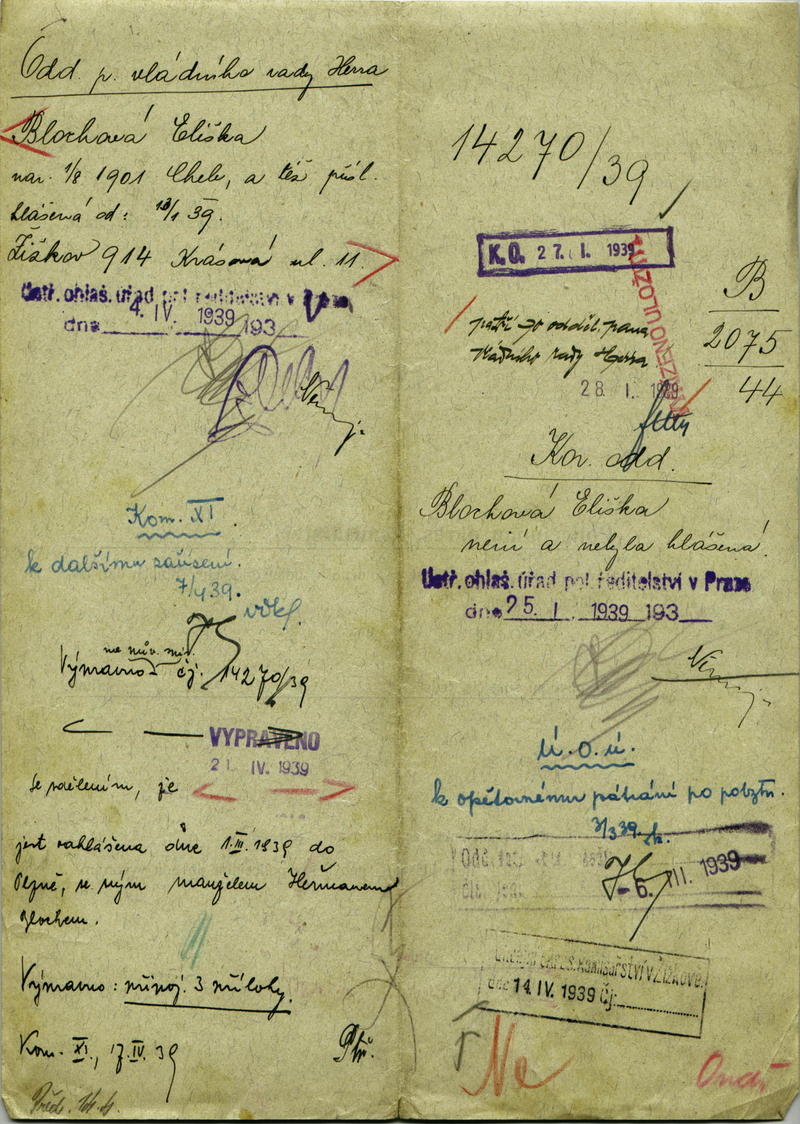 Odd. p. vládního rady Herra
Blochová Eliška
nar. 1/8 1901 Cheb, a též přísl.
hlášená od: 13/1 39.
Žižkov 914 Krásová ul. 11.
Ústř. ohlaš. úřad pol. ředitelství v Praze
dne 4. IV. 1939 193
Kom. XI.
k dalšímu zařízení.
7/4 39.
Výpravno čj. 14270/39
VYPRAVENO
21. IV. 1939
se sdělením, že
jest odhlášena dne 1.III.1939 do
Plzně, se svým manželem Heřmanem
Blochem.
Výpravno: připoj. 3 přílohy.
Kom. XI., 17.IV. 39
14270/39
K. O. 27. I. 1939
patří do odděl. pana
vládního rady Herra
28. I. 1939
B
2075
44
Kor. odd.
Blochová Eliška
není a nebyla hlášená.
Ústř. ohlaš. úřad pol. ředitelství v Praze
dne 25. I. 1939 193
Ú. O. ú.
k opětovnému pátrání po pobytu.
3/3 39.
-6. III. 1939
komisařství v Žižkově.
dne 14. IV. 1939 Čj.
Ne